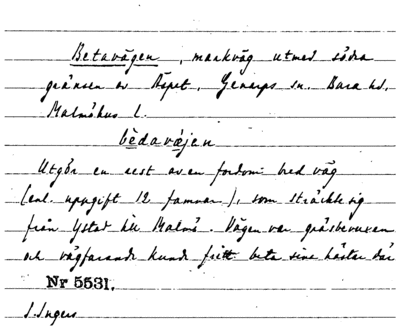 Betavägen, markväg utmed södra
gränsen av Äspet, Genarps sn. Bara hd.
Malmöhus l.
bèdavæjen
Utgör en rest av en fordom bred väg
(enl. uppgift 12 famnar), som sträckte sig
från Ystad till Malmö. Vägen var gräsbevuxen
och vägfarande kunde fritt beta sina hästar där
Nr 5531.
S. Ingers